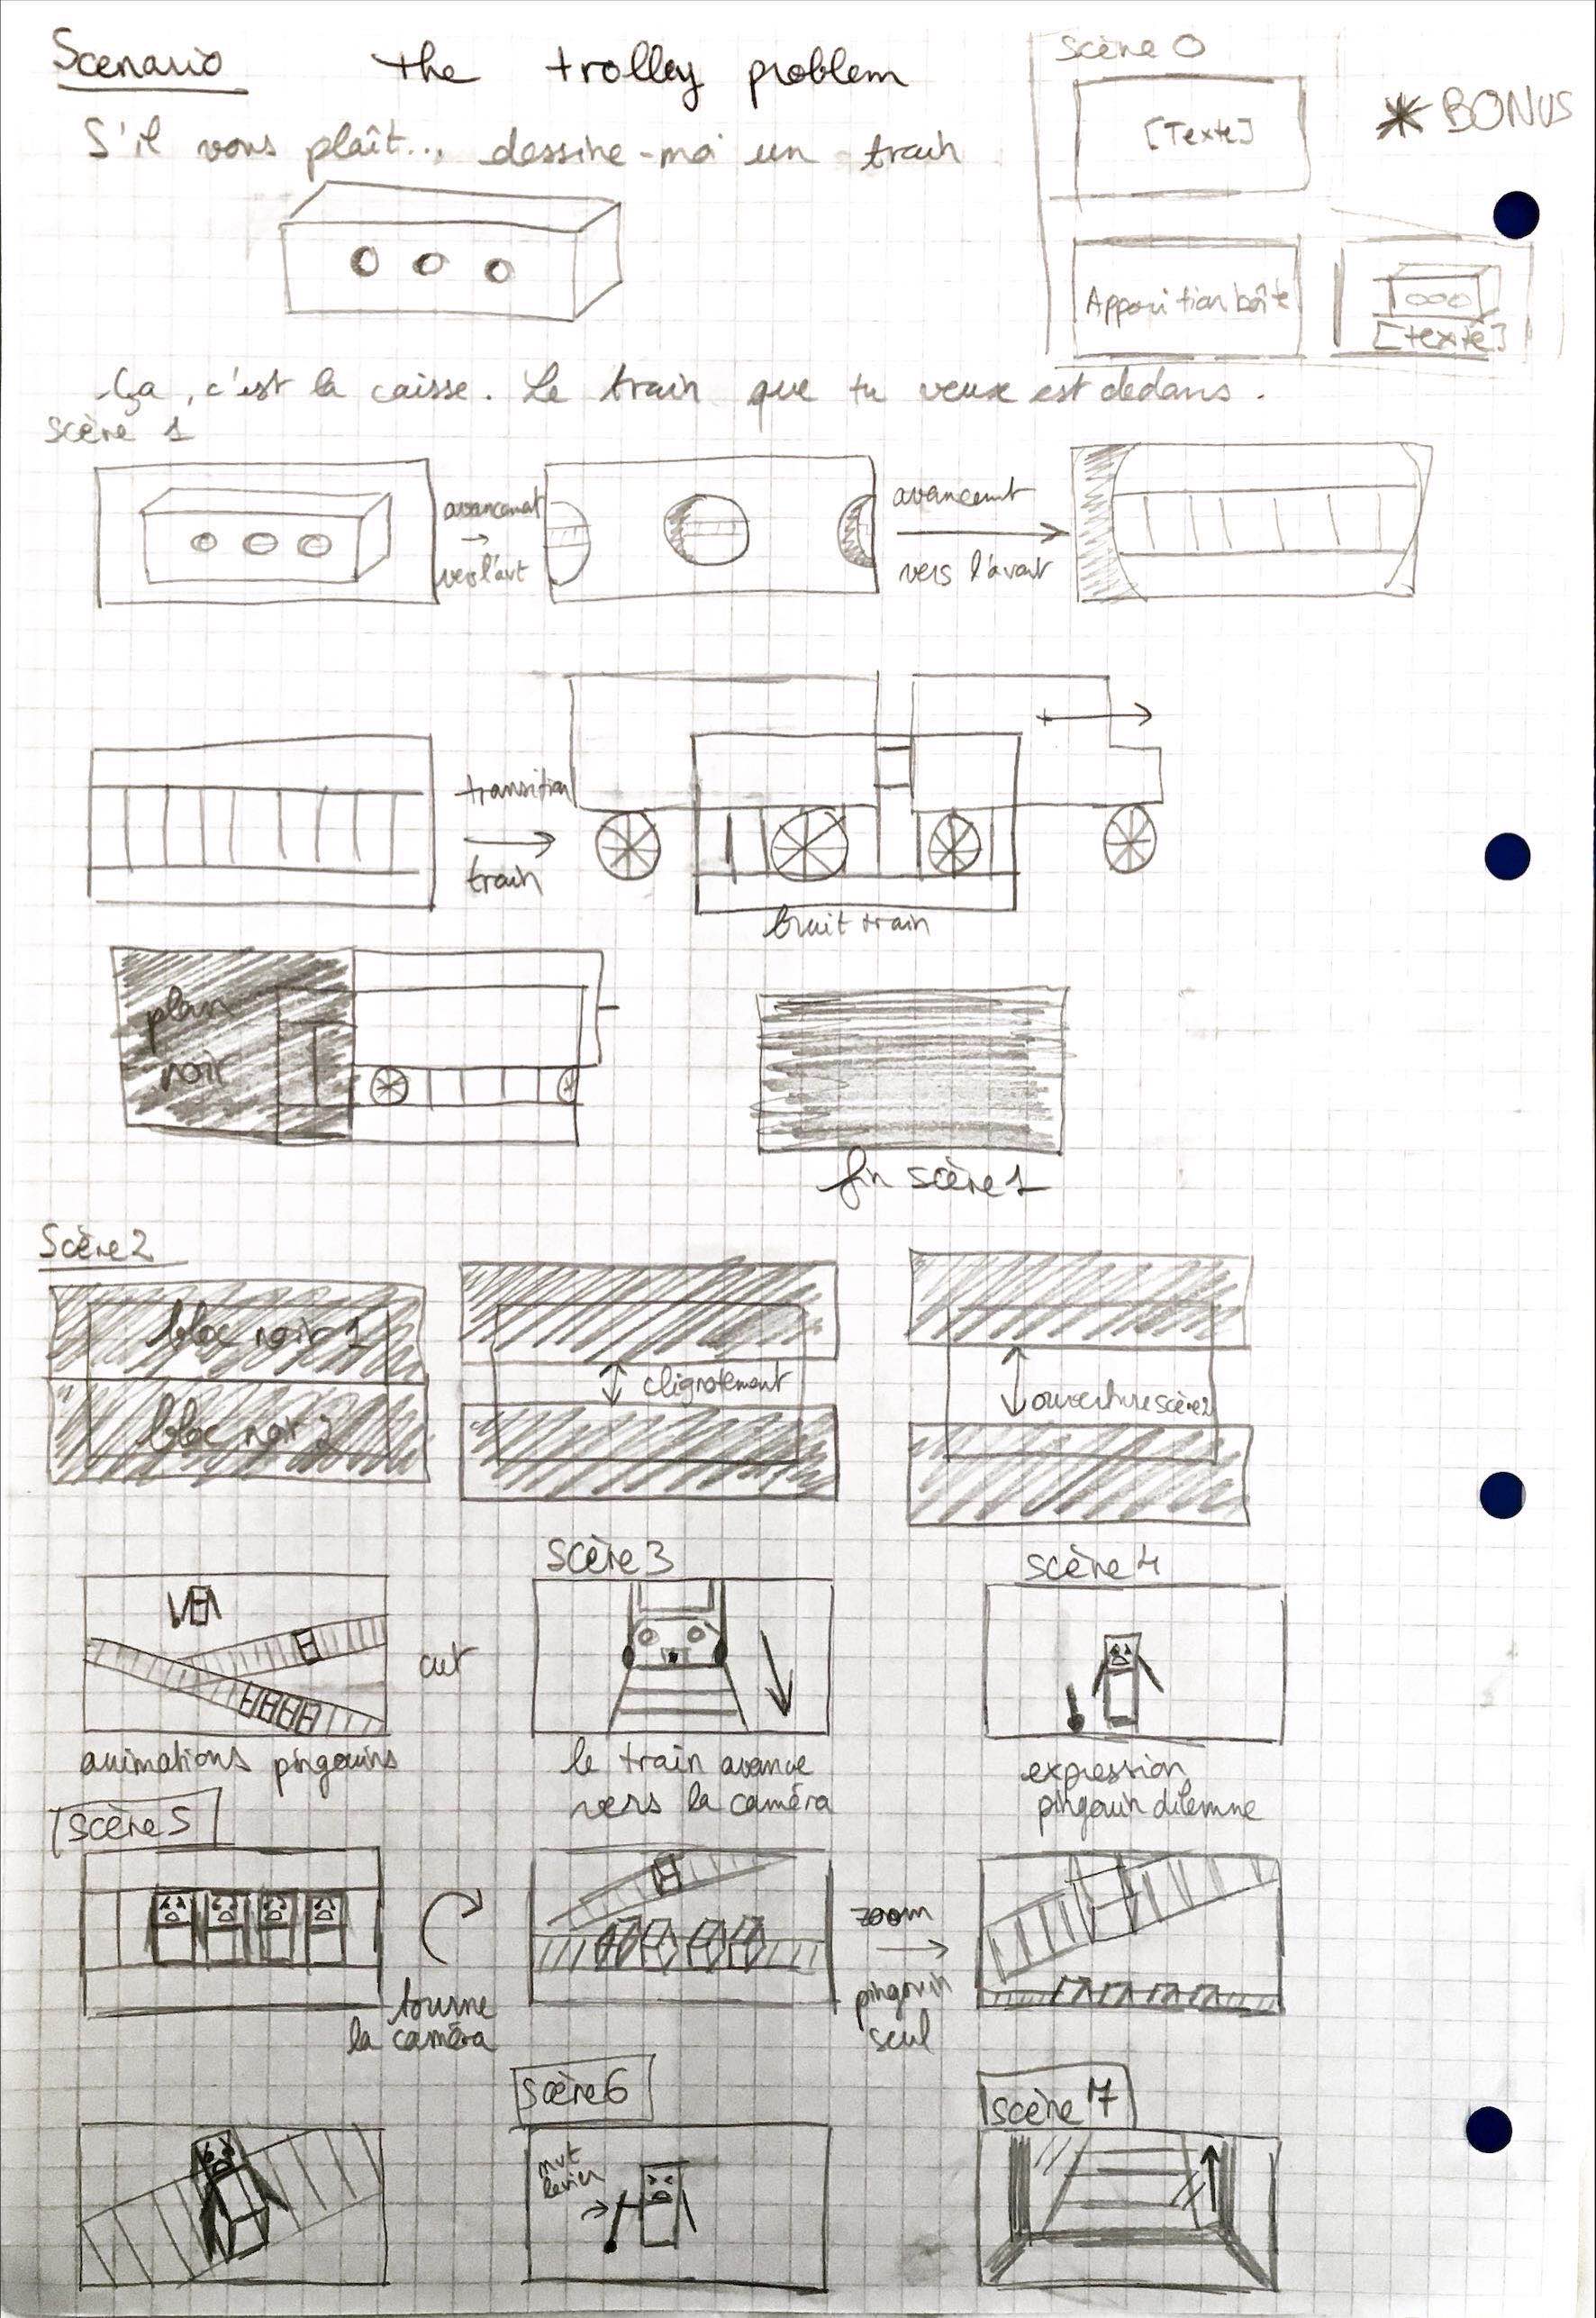 Scenario the trolley problem
S'il vous plaît... dessine-moi un train
scène 0
[Texte]
* BONUS
Apparition boîte
[texte]
Ça, c'est la caisse. Le train que tu veux est dedans.
scène 1
avancement
vers l'avt
avancement
vers l'avant
transition
train
bruit train
plan
noir
fin scène 1
Scène 2
bloc noir 1
bloc noir 2
clignotement
ouverture scène 2
animations pingouins
cut
Scène 3
le train avance
vers la caméra
scène 4
expression
pingouin dilemne
scène 5
tourne
la caméra
zoom
pingouin
seul
scène 6
mvt
levier
scène 7